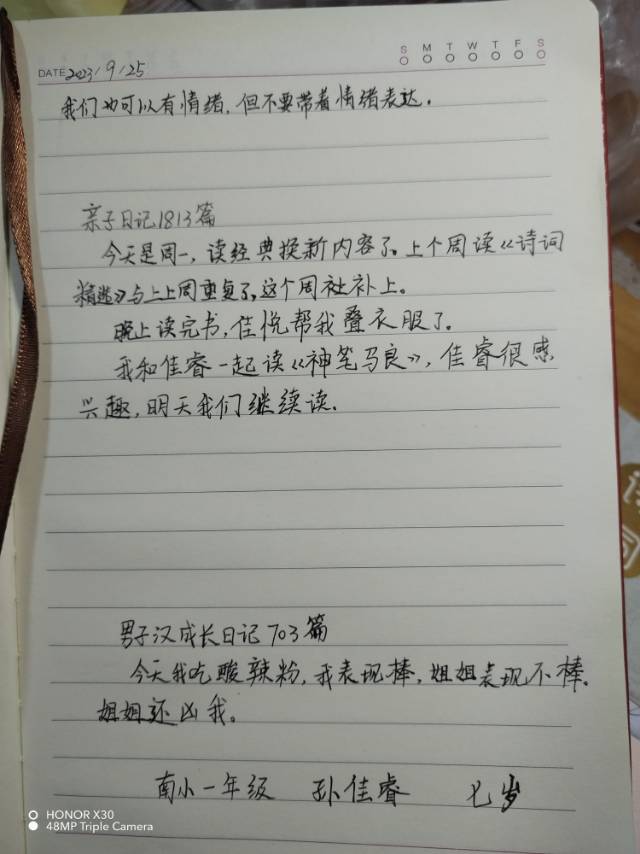 S M T W T F S
DATE 2023/9/25
我们也可以有情绪,但不要带着情绪表达。
亲子日记1813篇
今天是周一,读经典换新内容了。上个周读《诗词
精选》与上上周重复了,这个周补上。
晚上读完书,佳悦帮我叠衣服了。
我和佳睿一起读《神笔马良》,佳睿很感
兴趣,明天我们继续读.
男子汉成长日记703篇
今天我吃酸辣粉,我表现棒,姐姐表现不棒.
姐姐还凶我。
南小一年级 孙佳睿 七岁
HONOR X30
48MP Triple Camera